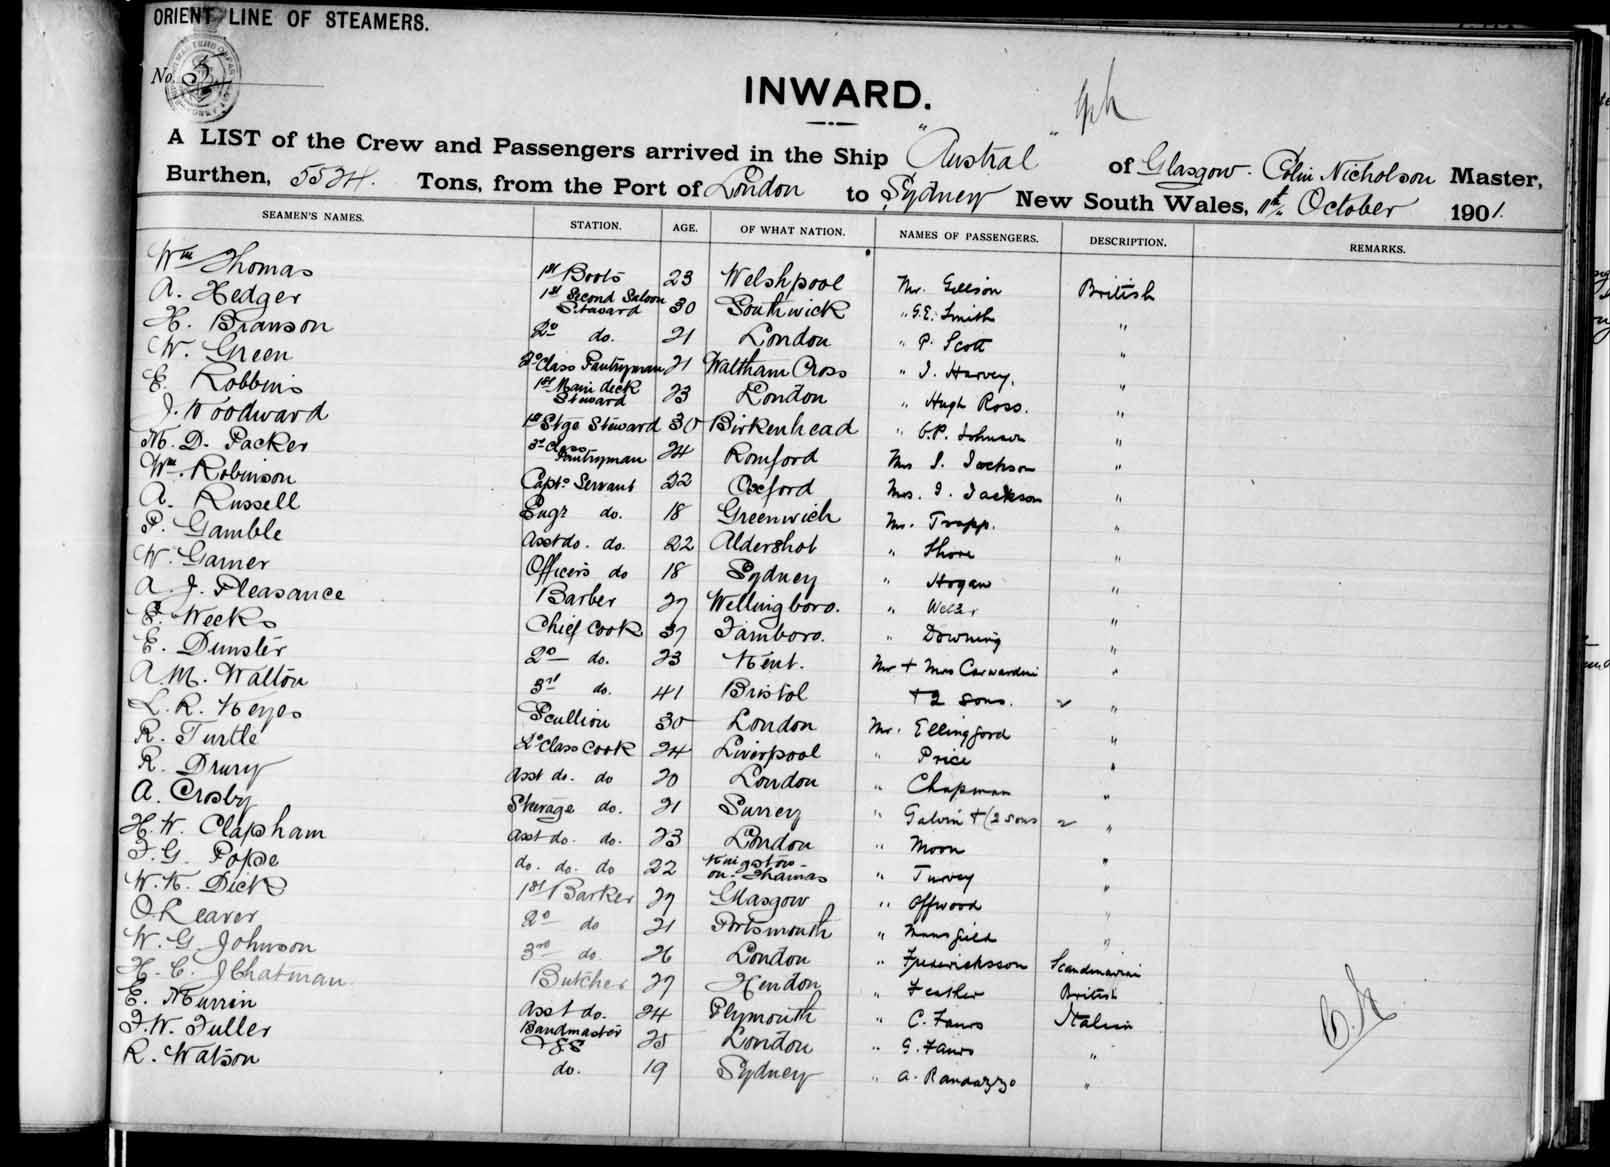 ORIENT LINE OF STEAMERS.
No. 5
INWARD.
A LIST of the Crew and Passengers arrived in the Ship "Austral" of Glasgow. Colin Nicholson Master,
Burthen, 5524. Tons, from the Port of London to Sydney New South Wales, 11th October 1901.
SEAMEN'S NAMES. STATION. AGE. OF WHAT NATION. NAMES OF PASSENGERS. DESCRIPTION. REMARKS.
Wm Thomas 1st Boots 23 Welshpool Mr. Gillson British
A. Hedger 1st Second Saloon Steward 30 Southwick " G.E. Smith "
H. Branson 2o do. 21 London " P. Scott "
W. Green 2o Class Pantryman 21 Waltham Cross " J. Harvey. "
E. Robbins 1st Main deck Steward 23 London " Hugh Ross. "
J. Woodward 1st Stge Steward 30 Birkenhead " G.P. Johnson "
M. D. Packer 3rd Class Pantryman 24 Romford Mrs I. Jackson "
Wm. Robinson Capts Servant 22 Oxford Mrs. I. Jackson "
A. Russell Engr do. 18 Greenwich Mr. Trapp. "
P. Gamble Asst do. do. 22 Aldershot " Shore "
W. Garner Officers do 18 Sydney " Hogan "
A. J. Pleasance Barber 27 Wellingboro. " "
F. Weeks Chief Cook 37 Tamboro. " Downing "
E. Dunster 2o do. 23 Kent. Mr + Mrs Carwardine "
A M. Walton 3rd do. 41 Bristol + 2 sons. 2 "
L. R. Keyes Scullion 30 London Mr. Ellingford "
R. Turtle 2o Class Cook 24 Liverpool " Price "
R. Drury Asst do. do 20 London " Chapman "
A. Crosby Steerage do. 21 Surrey " Galvin + (2 sons 2 "
H. W. Clapham Asst do. do. 23 London " Moon "
F. G. Pope do. do. do 22 Kingston-on-Thames " Turvey "
W. K. Dick 1st Barker 27 Glasgow " Offwood "
O Leaver 2o do 21 Portsmouth " Mansfield "
W. G Johnson 3rd do. 26 London " Fredericksson Scandinavian
H. C. J Chatman Butcher 27 Hendon " Feather British
E. Murrin Asst do. 24 Plymouth " C. Favro Italian
F. W. Fuller Bandmaster 25 London " G. Favro "
R. Watson do. 19 Sydney " A. Randazzo "